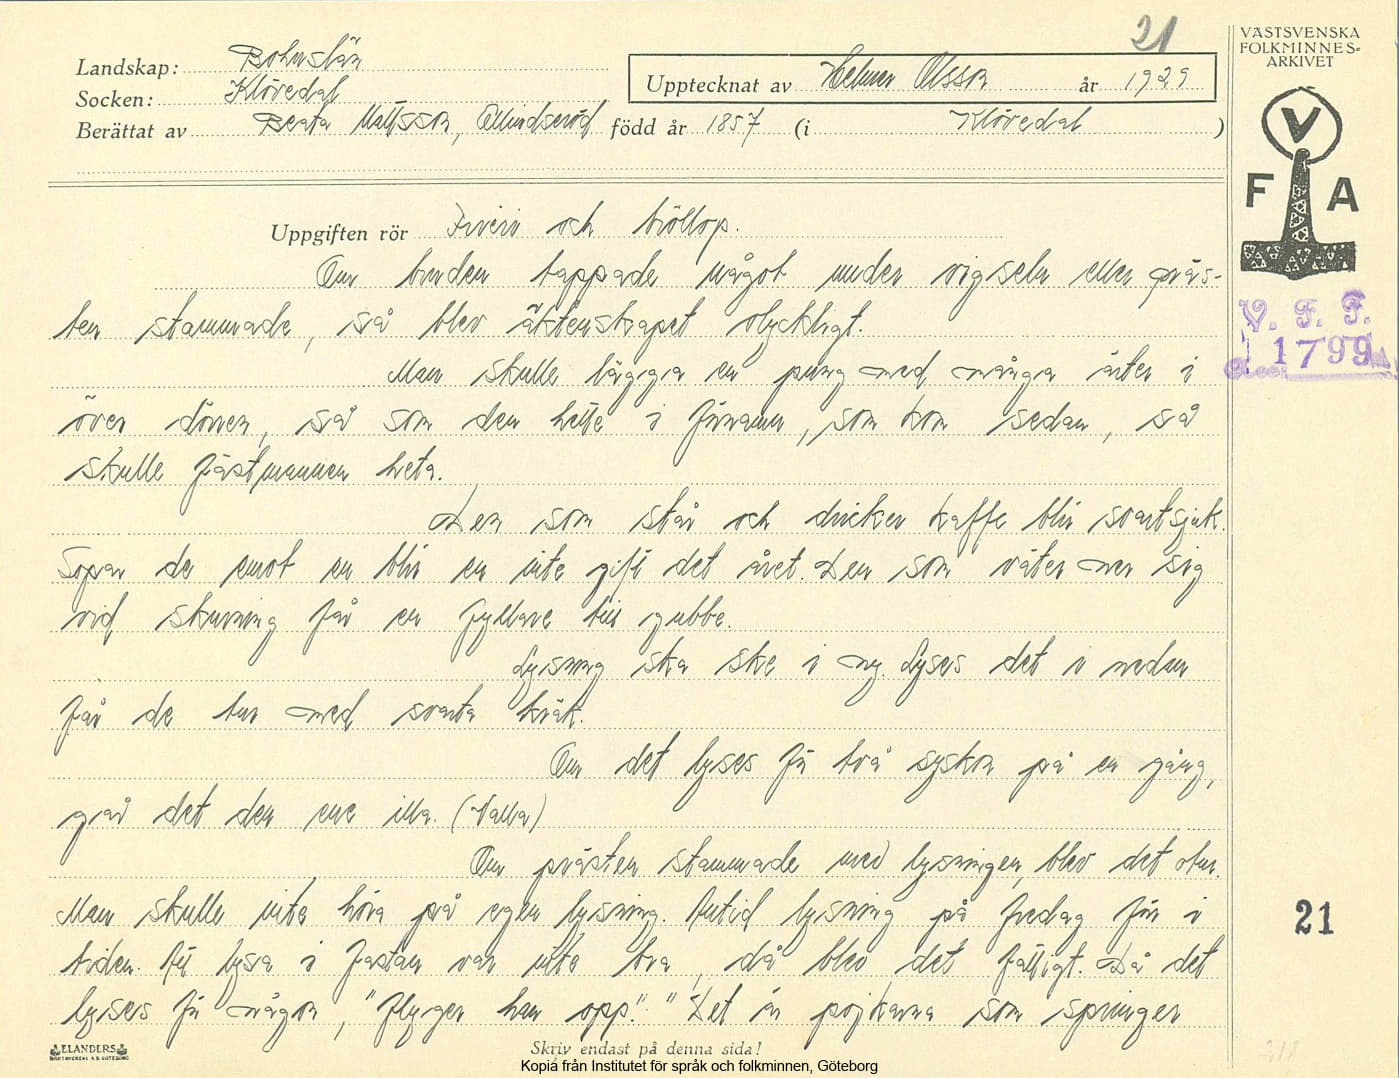 21
VÄSTSVENSKA
FOLKMINNES-
ARKIVET
Landskap: Bohuslän
Socken: Klövedal
Upptecknat av Helmer Olsson år 1929
Berättat av Beata Mattsson, född år 1857 (i Klövedal)
V
F A
Uppgiften rör Frieri och bröllop.
Om bruden tappade något under vigseln eller präs-
ten stammade, så blev äktenskapet olyckligt.
Man skulle lägga en pung med många ärter i
över dörren, så som den hette i förnamn, som kom sedan, så
skulle fästmannen heta.
Den som står och dricker kaffe blir svartsjuk.
Sopar de emot en blir en inte gift det året. Den som väter ner sig
vid skurning får en fyllare till gubbe.
Lysning ska ske i ny. Lyses det i nedan
får de tur med svarta kräk.
Om det lyses för två syskon på en gång,
går det den ene illa. (Valla)
Om prästen stammade med lysningen, blev det otur.
Man skulle inte höra på egen lysning. Alltid lysning på fredag förr i
tiden. Att lysa i fastan var inte bra, då blev det fattigt. Då det
lyses för någon, "flyger han opp." "Det är pojkarna som springer
V. F. F.
1799
21
ELANDERS
BOKTRYCKERI A.B. GÖTEBORG
Skriv endast på denna sida!
Kopia från Institutet för språk och folkminnen, Göteborg